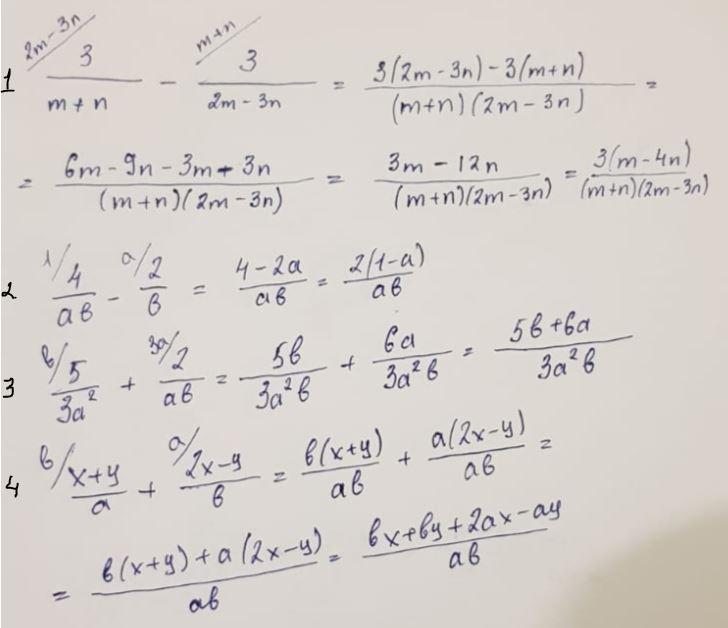 1 2m-3n/ 3/(m+n) - m+n/ 3/(2m-3n) = (3(2m-3n)-3(m+n))/((m+n)(2m-3n)) =
= (6m-9n-3m-3n)/((m+n)(2m-3n)) = (3m-12n)/((m+n)(2m-3n)) = 3(m-4n)/((m+n)(2m-3n))
2 1/ 4/(aв) - a/ 2/в = (4-2a)/(aв) = 2(1-a)/(aв)
3 в/ 5/(3a²) + 3a/ 2/(aв) = 5в/(3a²в) + 6a/(3a²в) = (5в+6a)/(3a²в)
4 в/ (x+y)/a + a/ (2x-y)/в = в(x+y)/(aв) + a(2x-y)/(aв) =
= (в(x+y)+a(2x-y))/(aв) = (вx+вy+2ax-ay)/(aв)